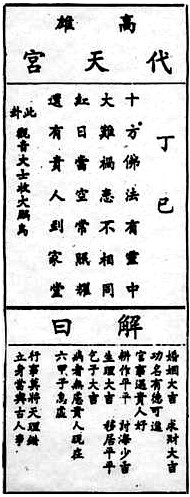 高雄
代天宮
丁巳
十方佛法有靈中
大難禍患不相同
紅日當空常照耀
還有貴人到家堂
此卦
觀音大士收大鵬鳥
解曰
婚姻大吉 求財大吉
功名有德可進
官事遇貴人好
耕作平平 討海少吉
生理大吉 移居平平
乞子大吉
病者無慮貴人現在
六甲子
行事莫將天理錯
立身當與古人爭